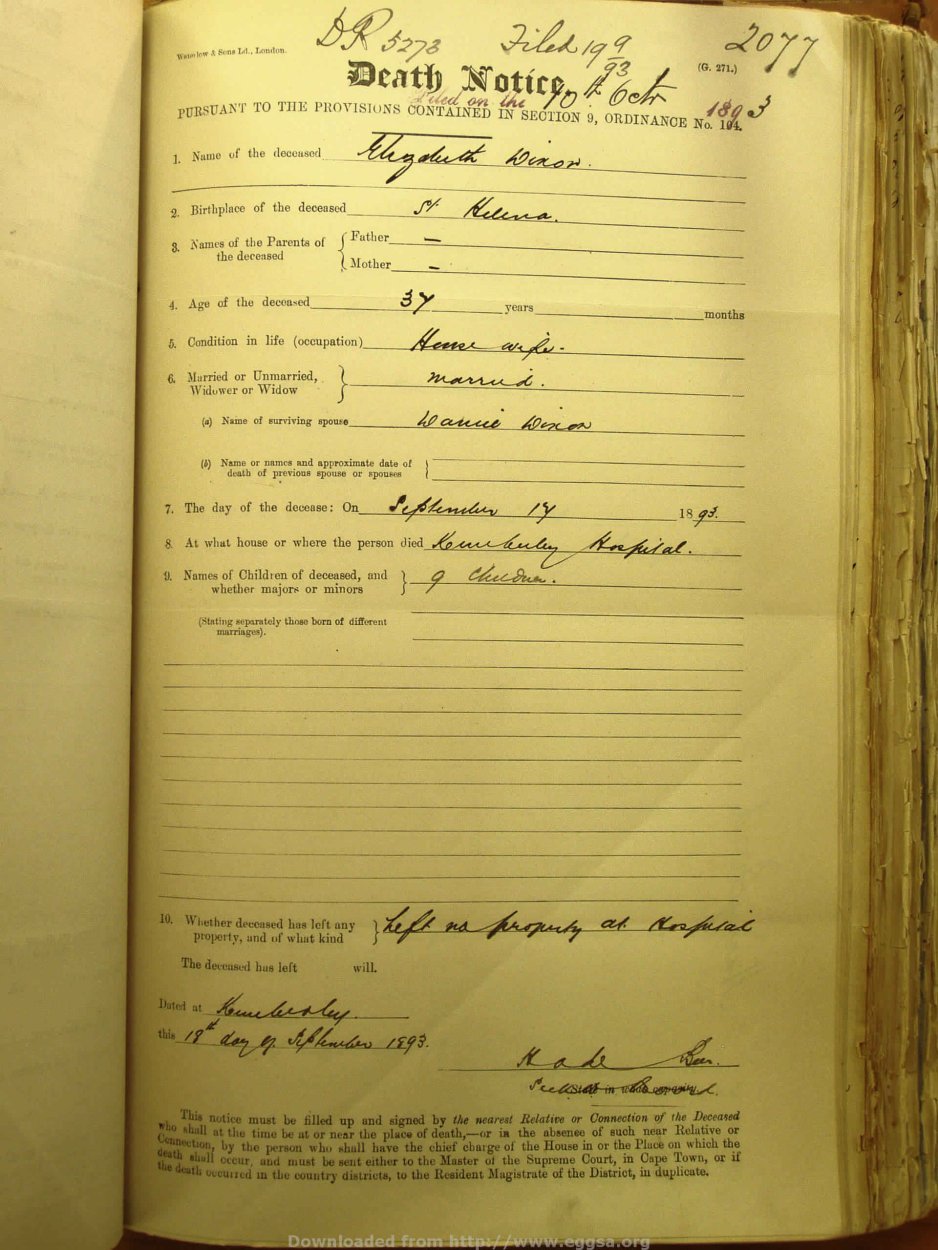 Waterlow & Sons Ld., London.
DR 5273 Filed 19/9/93 2077
(G. 271.)
Death Notice.
Filed on the 10th Octr 1893
PURSUANT TO THE PROVISIONS CONTAINED IN SECTION 9, ORDINANCE No. 104.
1. Name of the deceased Elizabeth Dixon.
2. Birthplace of the deceased St Helena.
3. Names of the Parents of the deceased { Father —
Mother —
4. Age of the deceased 37 years months
5. Condition in life (occupation) House wife.
6. Married or Unmarried, Widower or Widow } married.
(a) Name of surviving spouse Dixon
(b) Name or names and approximate date of death of previous spouse or spouses }
7. The day of the decease: On September 17 1893.
8. At what house or where the person died Kimberley Hospital.
9. Names of Children of deceased, and whether majors or minors } 9 Children.
(Stating separately those born of different marriages).
10. Whether deceased has left any property, and of what kind } Left no property at Hospital
The deceased has left will.
Dated at Kimberley.
this 18th day of September 1893.
This notice must be filled up and signed by the nearest Relative or Connection of the Deceased
who shall at the time be at or near the place of death,—or in the absence of such near Relative or
Connection, by the person who shall have the chief charge of the House in or the Place on which the
death shall occur, and must be sent either to the Master of the Supreme Court, in Cape Town, or if
the death occurred in the country districts, to the Resident Magistrate of the District, in duplicate.
Downloaded from http://www.eggsa.org